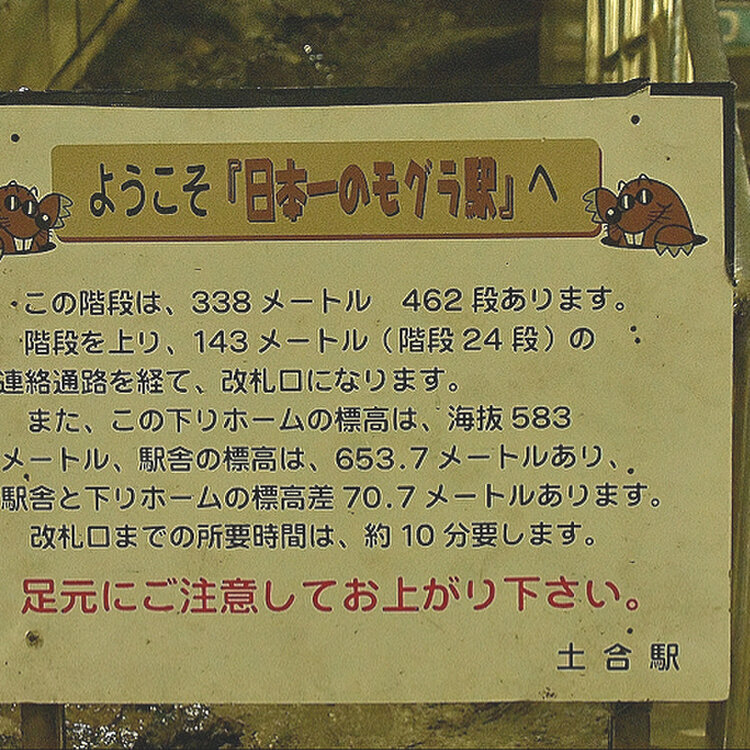 ようこそ『日本一のモグラ駅』へ
この階段は、338メートル　462段あります。
階段を上り、143メートル（階段24段）の
連絡通路を経て、改札口になります。
また、この下りホームの標高は、海抜583
メートル、駅舎の標高は、653.7メートルあり、
駅舎と下りホームの標高差70.7メートルあります。
改札口までの所要時間は、約10分要します。
足元にご注意してお上がり下さい。
土合駅